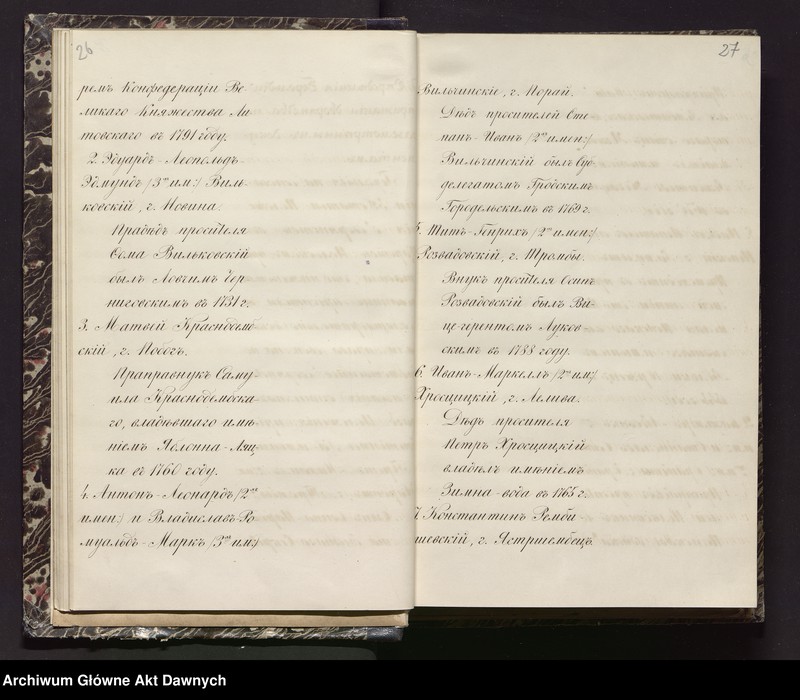 26
ремъ Конфедераціи Ве-
ликаго Княжества Ли-
товскаго въ 1791 году.
2. Эдуардъ-Леопольдъ-
Эдмундъ /3хъ им:/ Виль-
ковскій, г. Новина.
Прадѣдъ просителя
Ѳома Вильковскій
былъ Ловчимъ Чер-
ниговскимъ въ 1731 г.
3. Матѳей Краснодемб-
скій, г. Побогъ.
Праправнукъ Саму-
ила Краснодембска-
го, владѣвшаго имѣ-
ніемъ Яблонна-Ляц-
ка въ 1760 году.
4. Антонъ-Леонардъ /2хъ
имен:/ и Владиславъ-Ро-
муальдъ-Маркъ /3хъ им:/
27
Вильчинскіе, г. Порай.
Дѣдъ просителей Сте-
панъ-Иванъ /2хъ имен:/
Вильчинскій былъ Суб-
делегатомъ Гродскимъ
Городельскимъ въ 1769 г.
5. Титъ-Генрихъ /2хъ имен:/
Розвадовскій, г. Тромбы.
Внукъ просителя Осипъ
Розвадовскій былъ Ви-
це-герентомъ Луков-
скимъ въ 1788 году.
6. Иванъ-Маркеллъ /2хъ им:/
Хросцицкій, г. Лелива.
Дѣдъ просителя
Петръ Хросцицкій
владѣлъ имѣніемъ
Зимна-вода въ 1765 г.
7. КонстантинъRemби-
шевскій, г. Ястржембецъ.
Archiwum Główne Akt Dawnych